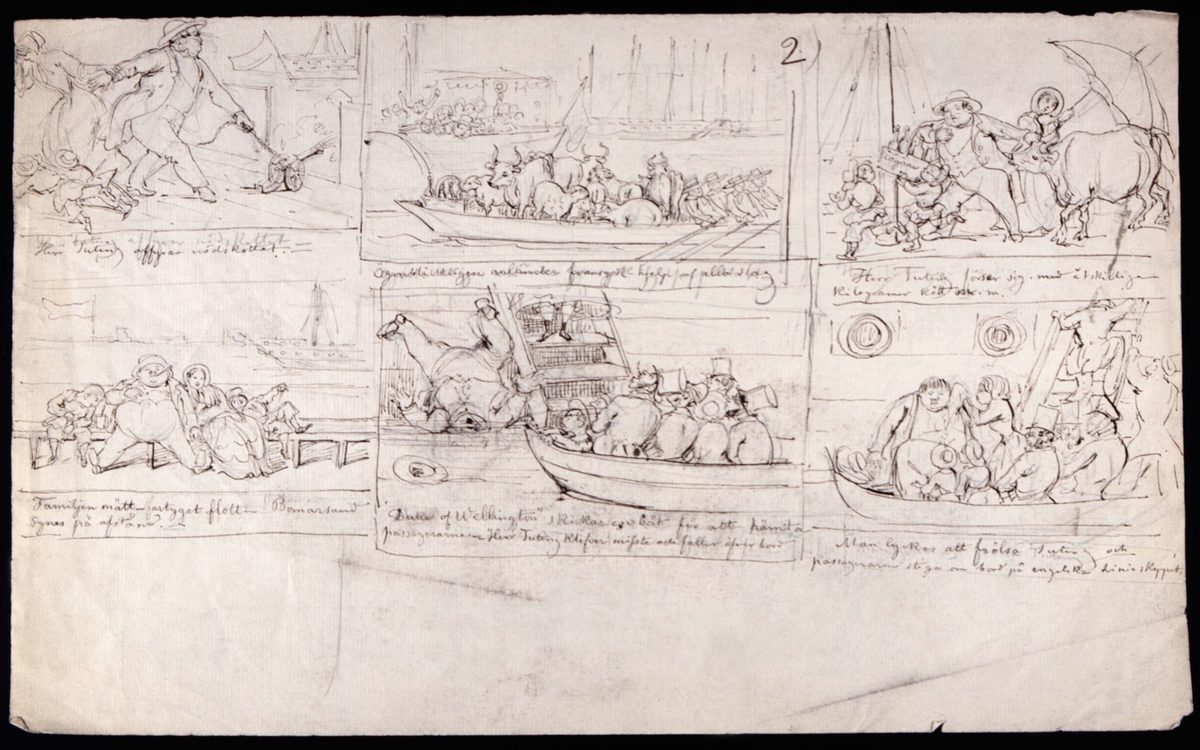 2.
Herr Tuting affyrar nödskottet.
ankommer fransysk hjelp af alla slag
Herr Tuting förser sig med åtskilliga
kilogramer kött m. m.
Familjen mätt – fartyget flott – Bomarsund
synes på afstånd –
"Duke of Wellington" skickar en båt för att hämta
passagerarne – Herr Tuting kliver miste och faller öfver bord
Man lyckas att frälsa Tuting och
passagerarne stiga om bord på engelska Linieskeppet.